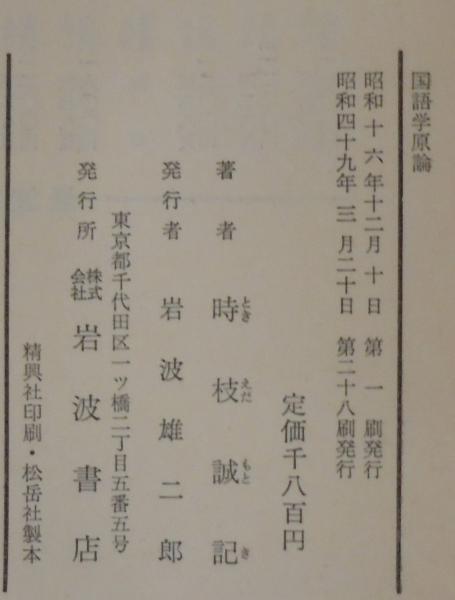 国語学原論
昭和十六年十二月十日 第一刷発行
昭和四十九年三月二十日 第二十八刷発行
定価千八百円
著者 時枝誠記
とき えだ もと き
発行者 岩波雄二郎
東京都千代田区一ツ橋二丁目五番五号
発行所 株式会社 岩波書店
精興社印刷・松岳社製本